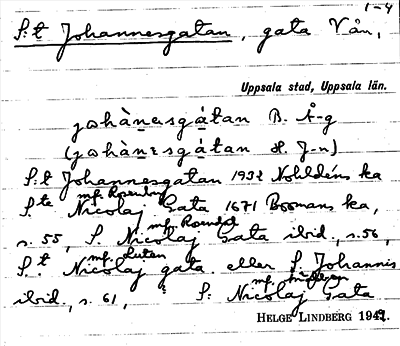 1-4
S:t Johannesgatan, gata Vån,
Uppsala stad, Uppsala län.
johànesgátan B. Å-g
(johànesgátan H. J-n)
S:t Johannesgatan 1932 Nohldéns ka
mf. Rosenborg
S:te Nicolaj Gata 1671 Boomans ka,
mf. Rosendal
s. 55, S. Nicolaj Gata ibid., s. 56,
mf. Lutan
S:t Nicolaj gata eller S Johannis
ibid., s. 61, S: Nicolaj Gata
HELGE LINDBERG 1942.